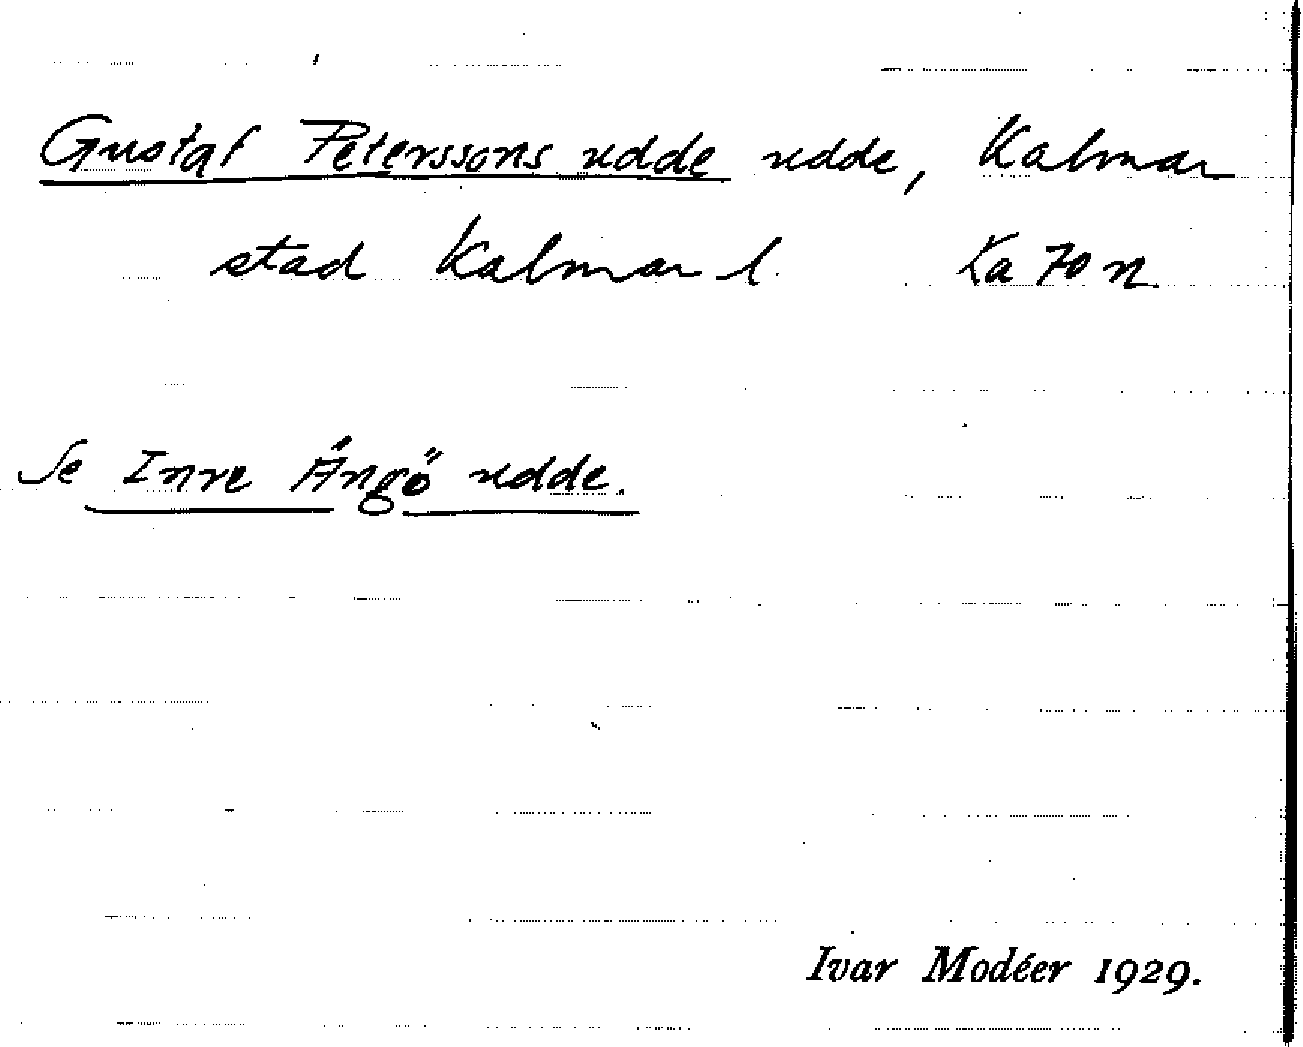 Gustaf Peterssons udde udde, Kalmar
stad Kalmar l. Ka 70 n
Se Inre Ängö udde.
Ivar Modéer 1929.